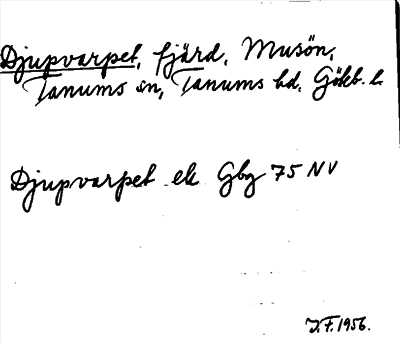 Djupvarpet, fjärd, Musön,
Tanums sn, Tanums hd, Götb. l.
Djupvarpet ek Gbg 75 NV
J.F. 1956.